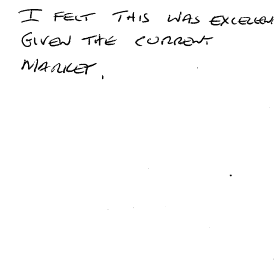 I FELT THIS WAS EXCELLEN
GIVEN THE CURRENT
MARKET.